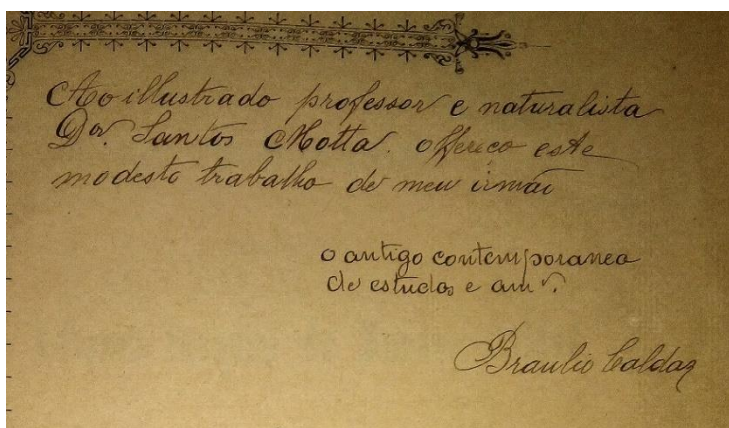 Ao illustrado professor e naturalista
Dor. Santos Motta. offereço este
modesto trabalho de meu irmão
o antigo contemporaneo
de estudos e amº.
Braulio Caldas